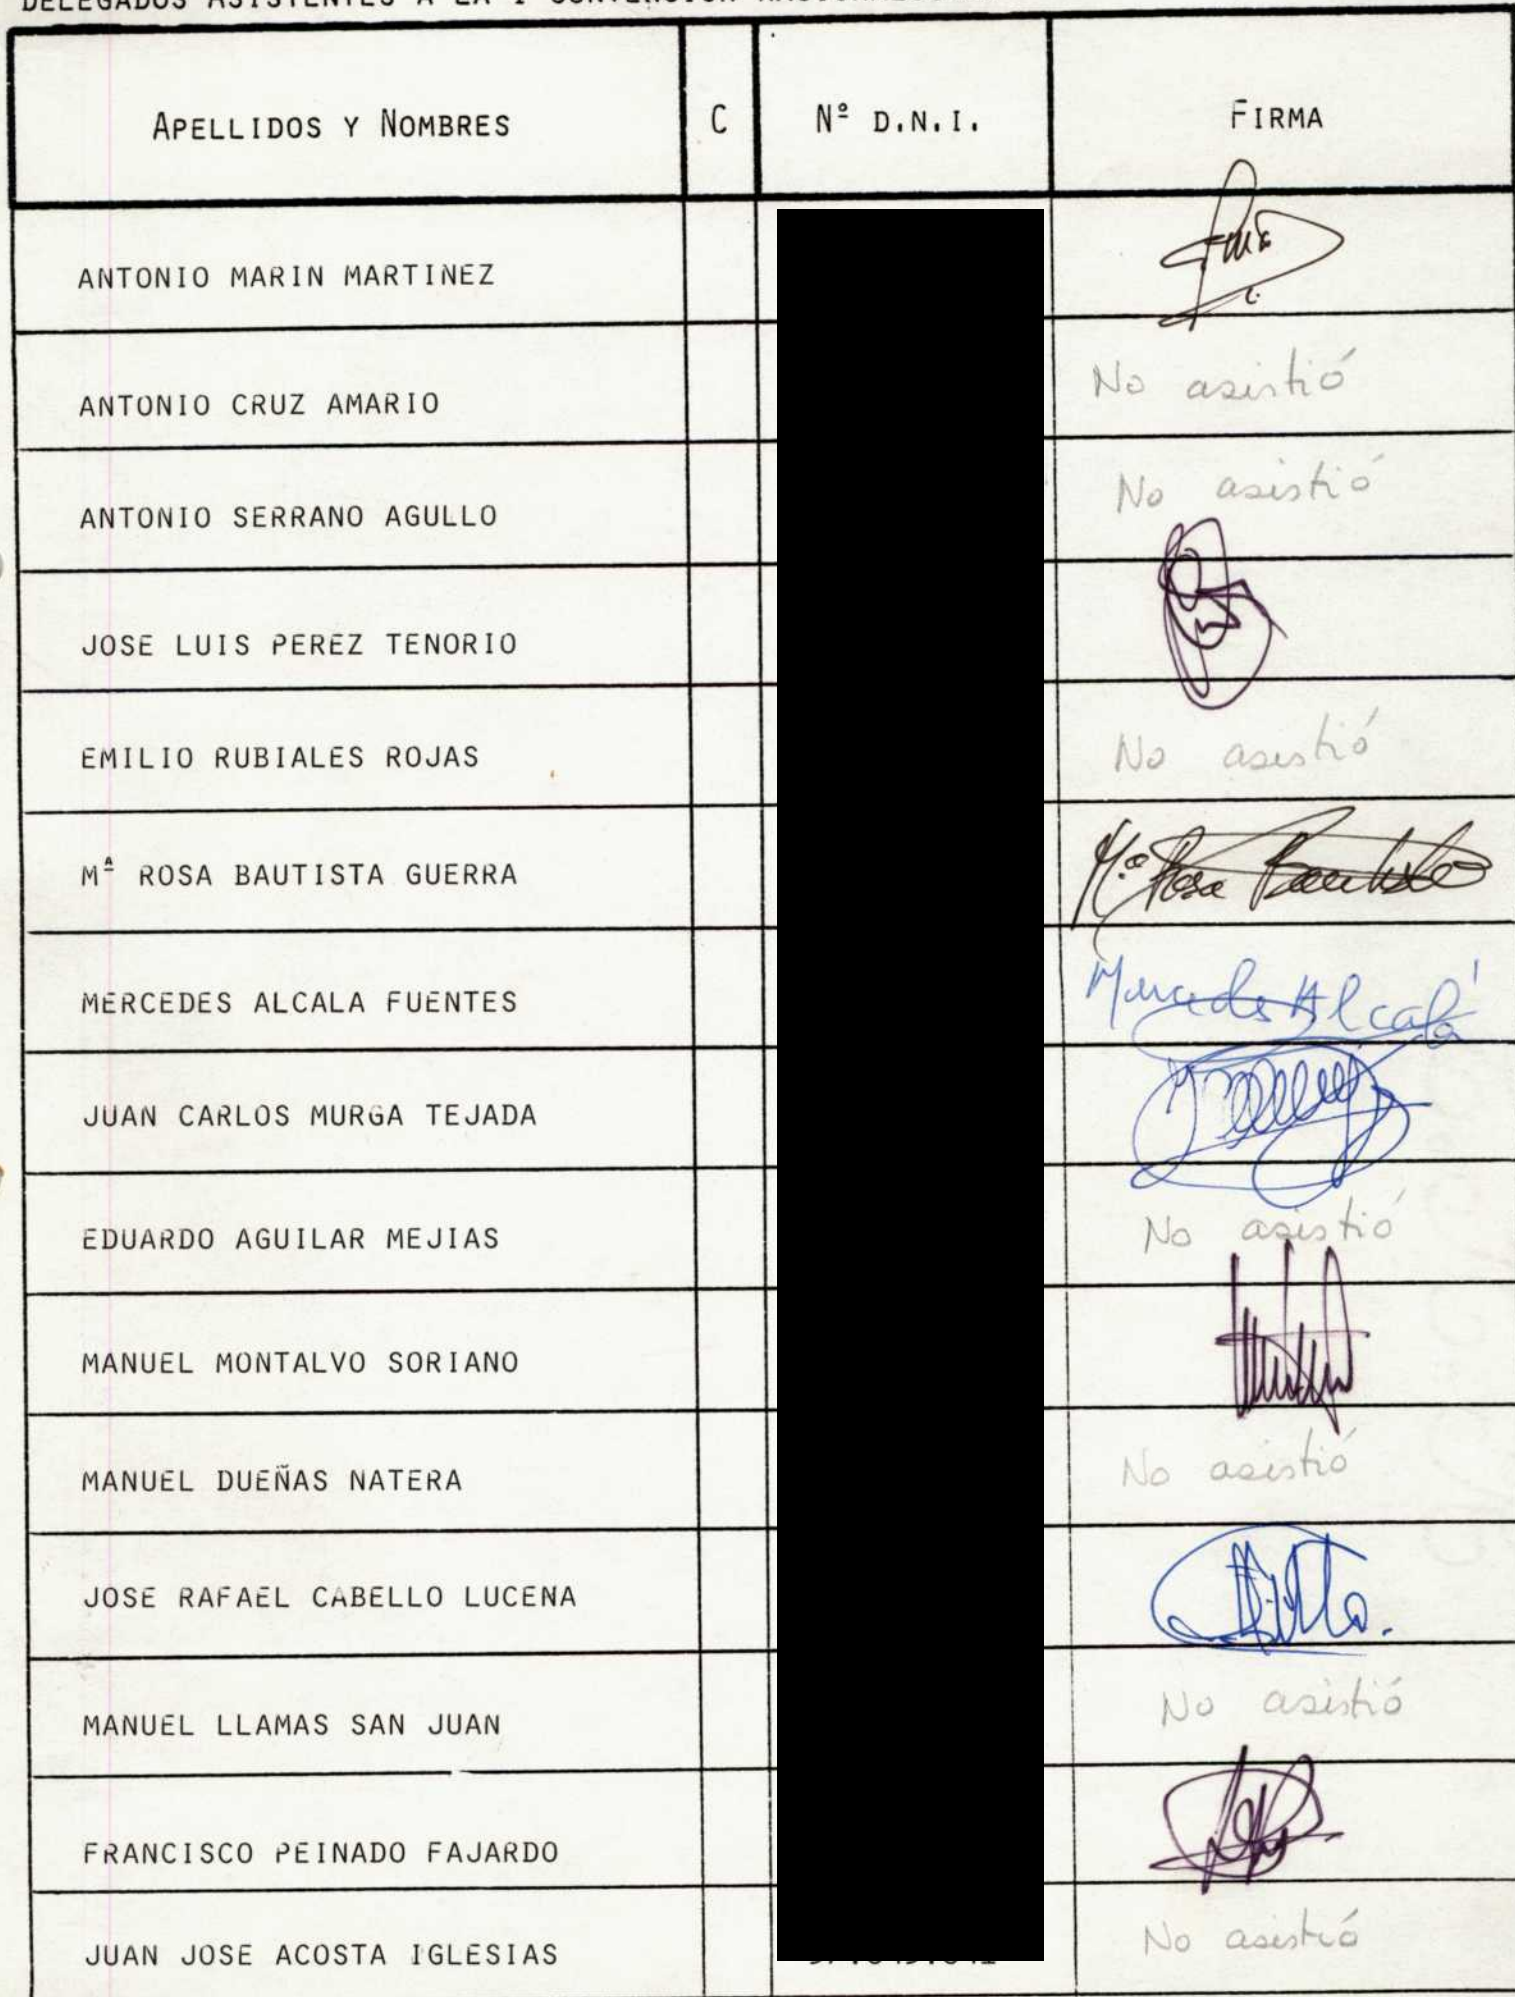 DELEGADOS ASISTENTES A LA I CONVENCION
APELLIDOS Y NOMBRES C Nº D.N.I. FIRMA
ANTONIO MARIN MARTINEZ
ANTONIO CRUZ AMARIO No asistió
ANTONIO SERRANO AGULLO No asistió
JOSE LUIS PEREZ TENORIO
EMILIO RUBIALES ROJAS No asistió
Mª ROSA BAUTISTA GUERRA Mª Rosa Bautista
MERCEDES ALCALA FUENTES Mercedes Alcalá
JUAN CARLOS MURGA TEJADA
EDUARDO AGUILAR MEJIAS No asistió
MANUEL MONTALVO SORIANO
MANUEL DUEÑAS NATERA No asistió
JOSE RAFAEL CABELLO LUCENA
MANUEL LLAMAS SAN JUAN No asistió
FRANCISCO PEINADO FAJARDO
JUAN JOSE ACOSTA IGLESIAS No asistió